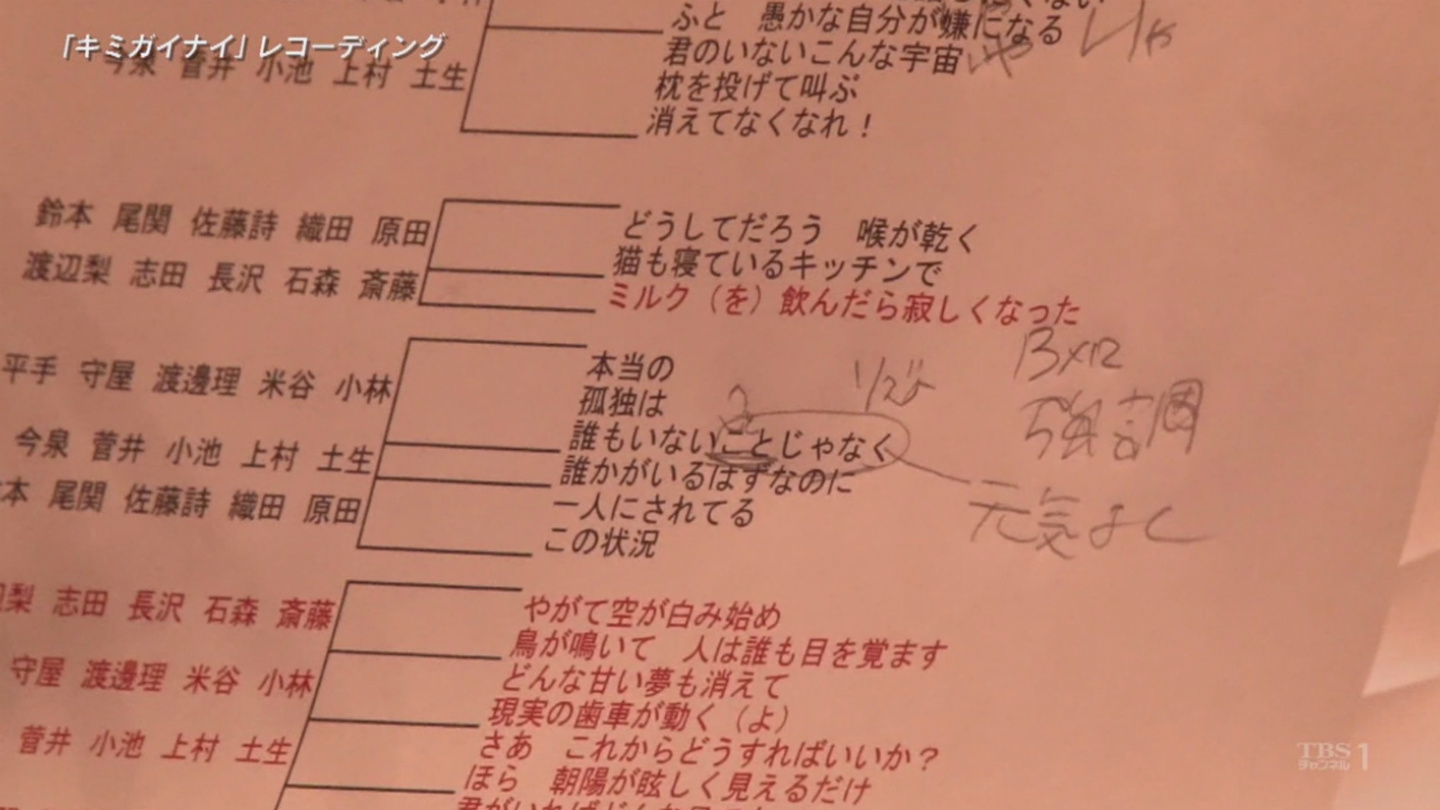 「キミガイナイ」レコーディング
ふと　愚かな自分が嫌になる
君のいないこんな宇宙
今泉　菅井　小池　上村　土生
枕を投げて叫ぶ
消えてなくなれ！
鈴本　尾関　佐藤詩　織田　原田
どうしてだろう　喉が乾く
渡辺梨　志田　長沢　石森　斎藤
猫も寝ているキッチンで
ミルク（を）飲んだら寂しくなった
平手　守屋　渡邊理　米谷　小林
本当の
孤独は
今泉　菅井　小池　上村　土生
誰もいないことじゃなく
強調
元気よく
誰かがいるはずなのに
本　尾関　佐藤詩　織田　原田
一人にされてる
この状況
梨　志田　長沢　石森　斎藤
やがて空が白み始め
鳥が鳴いて　人は誰も目を覚ます
守屋　渡邊理　米谷　小林
どんな甘い夢も消えて
現実の歯車が動く（よ）
菅井　小池　上村　土生
さあ　これからどうすればいいか？
ほら　朝陽が眩しく見えるだけ
TBS
チャンネル1